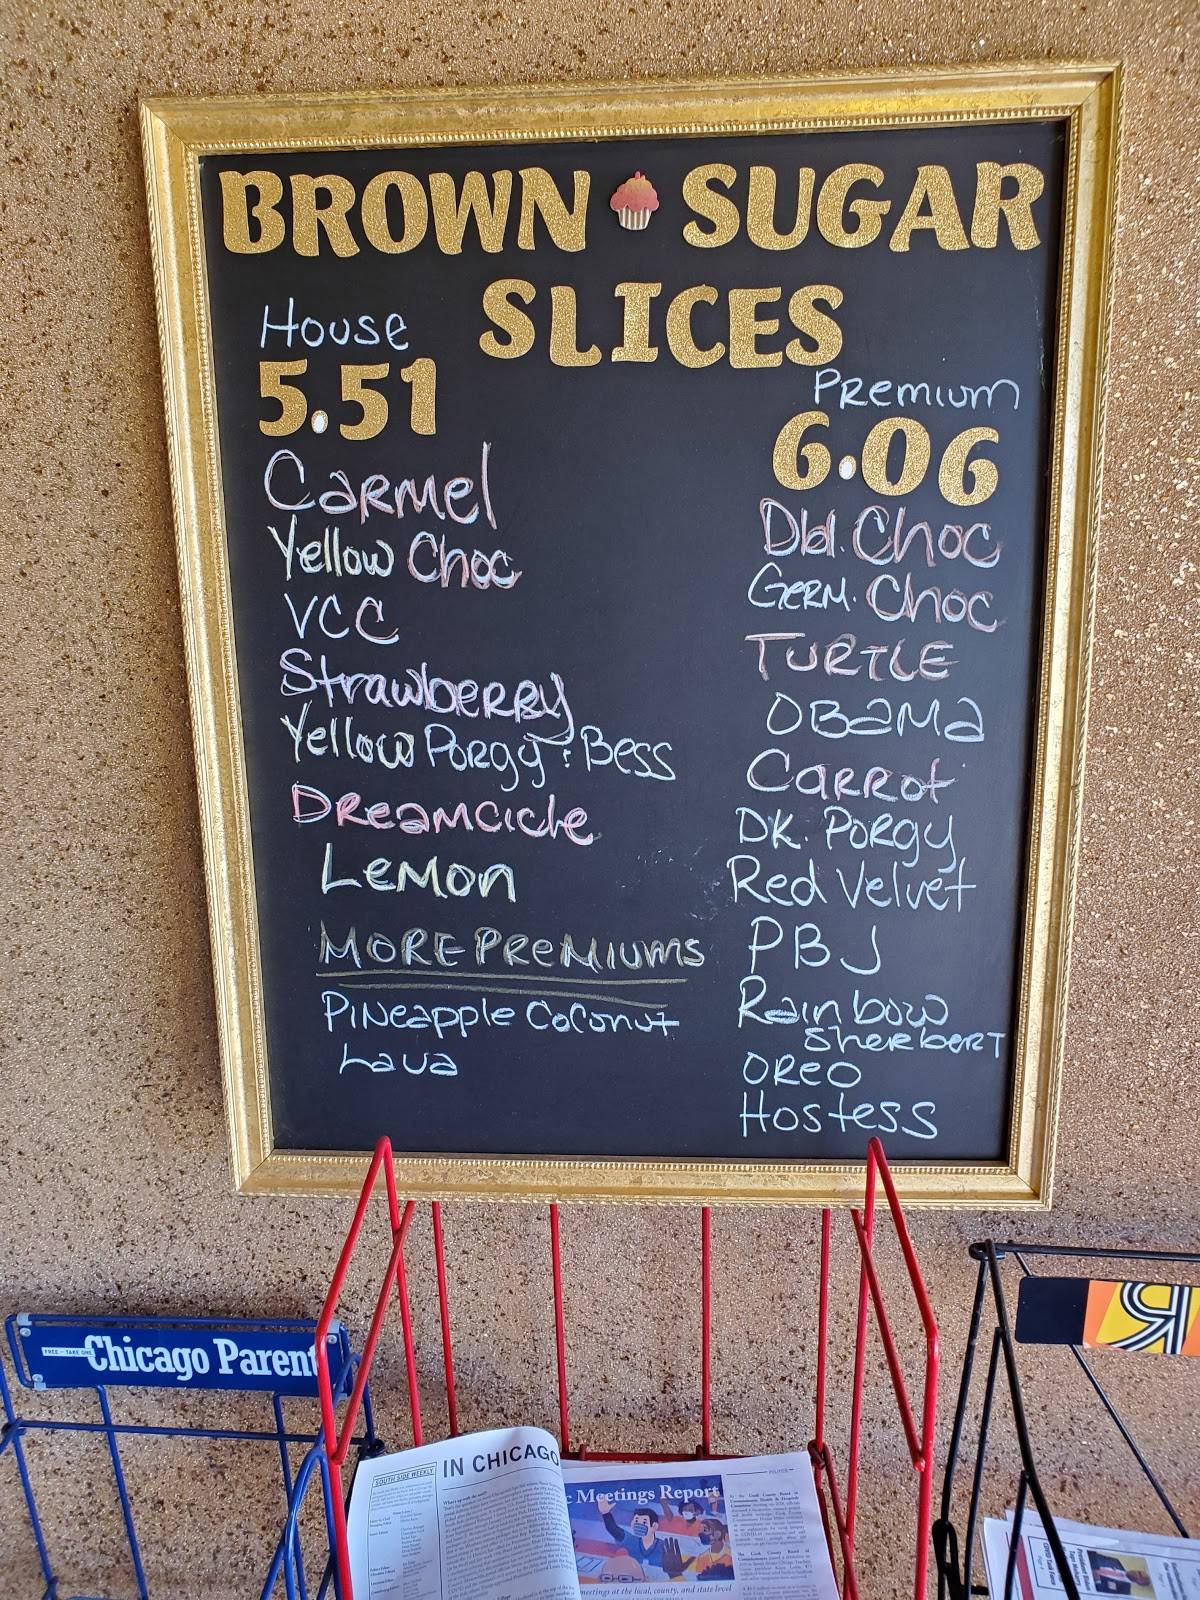 BROWN SUGAR
SLICES
House
5.51
Carmel
Yellow Choc
VCC
Strawberry
Yellow Porgy & Bess
Dreamcicle
Lemon
MORE PREMIUMS
Pineapple Coconut
Lava
Premium
6.06
Dbl. Choc
Germ. Choc
TURTLE
OBAMA
Carrot
DK. Porgy
Red Velvet
PBJ
Rainbow
Sherbert
OREO
Hostess
FREE - TAKE ONE
Chicago Parent
SOUTH SIDE WEEKLY
IN CHICAGO
c Meetings Report
POLITICS
meetings at the local, county, and state level
R